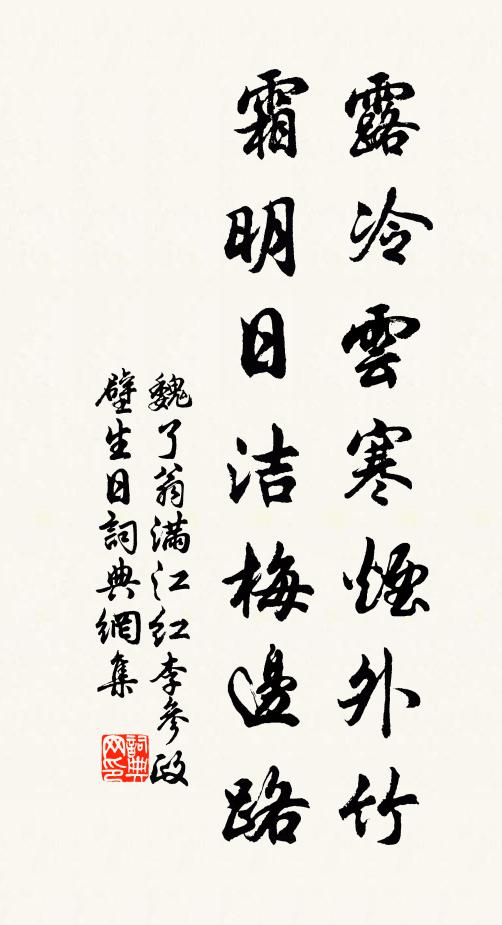 露冷雲寒煙外竹
霜明日洁梅邊路
魏了翁满江红李參政
壁生日詞典網集
詞典
网印